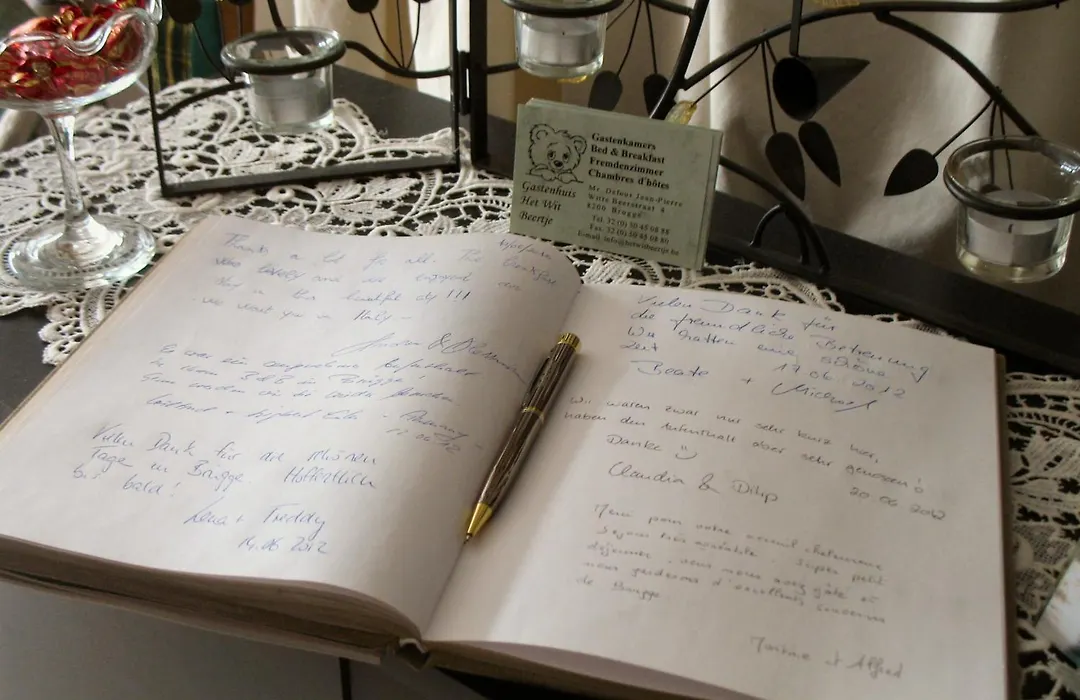 Gastenkamers
Bed & Breakfast
Fremdenzimmer
Chambres d'hôtes
Gastenhuis
Het Wit
Beertje
Mr. Defour Jean-Pierre
Witte Beerstraat 4
8200 Brugge
Tel. 32 (0) 50 45 08 88
Fax. 32 (0) 50 45 08 80
E-mail info@hetwitbeertje.be
Thanks a lot for all. The breakfast
was lovely and we enjoyed our
stay in this beautiful city!!!
we want you in Italy -
Es war ein angenehmer Aufenthalt
in Ihrem B&B in Brügge!
Vielen Dank für die schönen
Tage in Brügge. Hoffentlich
bis bald!
Lena + Freddy
14.06 2012
Vielen Dank für
die freundliche Betreuung
Wir hatten eine schöne
Zeit
17.06.2012
Beate + Michael
Wir waren zwar nur sehr kurz hier,
haben den Aufenthalt aber sehr genossen!
Danke
Claudia & Dilip
20.06 2012
Merci pour votre accueil chaleureux
Séjour très agréable. Super petit
déjeuner, vous nous avez gâté et
nous garderons d'excellents souvenirs
de Bruges
Martine et Alfred